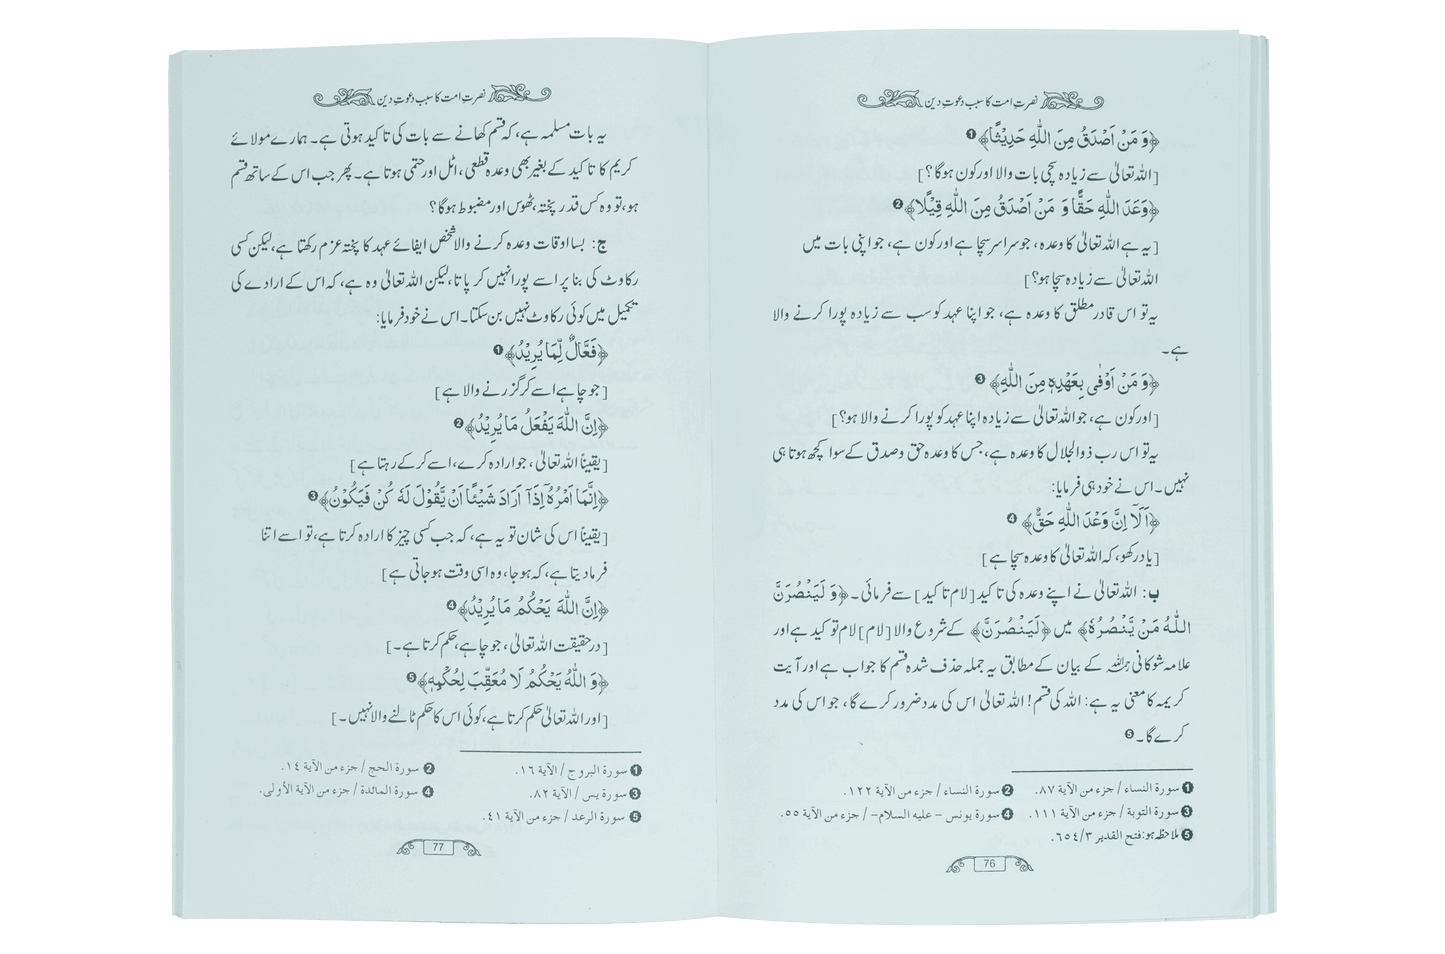 نصرتِ امت کا سبب دعوتِ دین
﴿وَ مَنْ اَصْدَقُ مِنَ اللّٰهِ حَدِيْثًا﴾ ❶
[اللہ تعالیٰ سے زیادہ سچی بات والا اور کون ہوگا؟]
﴿وَعْدَ اللّٰهِ حَقًّا وَ مَنْ اَصْدَقُ مِنَ اللّٰهِ قِيْلًا﴾ ❷
[یہ ہے اللہ تعالیٰ کا وعدہ، جو سراسر سچا ہے اور کون ہے، جو اپنی بات میں
اللہ تعالیٰ سے زیادہ سچا ہو؟]
یہ تو اس قادرِ مطلق کا وعدہ ہے، جو اپنا عہد کو سب سے زیادہ پورا کرنے والا
ہے۔
﴿وَ مَنْ اَوْفٰى بِعَهْدِهٖ مِنَ اللّٰهِ﴾ ❸
[اور کون ہے، جو اللہ تعالیٰ سے زیادہ اپنا عہد کو پورا کرنے والا ہو؟]
یہ تو اس رب ذوالجلال کا وعدہ ہے، جس کا وعدہ حق و صدق کے سوا کچھ ہوتا ہی
نہیں۔ اس نے خود ہی فرمایا:
﴿اَلَآ اِنَّ وَعْدَ اللّٰهِ حَقٌّ﴾ ❹
[یاد رکھو، کہ اللہ تعالیٰ کا وعدہ سچا ہے]
ب: اللہ تعالیٰ نے اپنے وعدہ کی تاکید [لام تاکید] سے فرمائی۔ ﴿وَ لَيَنْصُرَنَّ
اللّٰهُ مَنْ يَّنْصُرُهٗ﴾ میں ﴿لَيَنْصُرَنَّ﴾ کے شروع والا [لام] لام توکید ہے اور
علامہ شوکانی رحمہ اللہ کے بیان کے مطابق یہ جملہ حذف شدہ قسم کا جواب ہے اور آیت
کریمہ کا معنی یہ ہے: اللہ کی قسم! اللہ تعالیٰ اس کی مدد ضرور کرے گا، جو اس کی مدد
کرے گا۔ ❺
❶ سورة النساء / جزء من الآية ٨٧. ❷ سورة النساء / جزء من الآية ١٢٢.
❸ سورة التوبة / جزء من الآية ١١١. ❹ سورة يونس – عليه السلام – / جزء من الآية ٥٥.
❺ ملاحظہ ہو: فتح القدير ٣/٦٥٤.
76
نصرتِ امت کا سبب دعوتِ دین
یہ بات مسلمہ ہے، کہ قسم کھانے سے بات کی تاکید ہوتی ہے۔ ہمارے مولائے
کریم کا تاکید کے بغیر بھی وعدہ قطعی، اٹل اور حتمی ہوتا ہے۔ پھر جب اس کے ساتھ قسم
ہو، تو وہ کس قدر پختہ، ٹھوس اور مضبوط ہوگا؟
ج: بسا اوقات وعدہ کرنے والا شخص ایفائے عہد کا پختہ عزم رکھتا ہے، لیکن کسی
رکاوٹ کی بنا پر اسے پورا نہیں کر پاتا، لیکن اللہ تعالیٰ وہ ہے، کہ اس کے ارادے کی
تکمیل میں کوئی رکاوٹ نہیں بن سکتا۔ اس نے خود فرمایا:
﴿فَعَّالٌ لِّمَا يُرِيْدُ﴾ ❶
[جو چاہے اسے کر گزرنے والا ہے]
﴿اِنَّ اللّٰهَ يَفْعَلُ مَا يُرِيْدُ﴾ ❷
[یقیناً اللہ تعالیٰ، جو ارادہ کرے، اسے کر کے رہتا ہے]
﴿اِنَّمَآ اَمْرُهٗٓ اِذَآ اَرَادَ شَيْئًا اَنْ يَّقُوْلَ لَهٗ كُنْ فَيَكُوْنُ﴾ ❸
[یقیناً اس کی شان تو یہ ہے، کہ جب کسی چیز کا ارادہ کرتا ہے، تو اسے اتنا
فرما دیتا ہے، کہ ہو جا، وہ اسی وقت ہو جاتی ہے]
﴿اِنَّ اللّٰهَ يَحْكُمُ مَا يُرِيْدُ﴾ ❹
[درحقیقت اللہ تعالیٰ، جو چاہے، حکم کرتا ہے۔]
﴿وَ اللّٰهُ يَحْكُمُ لَا مُعَقِّبَ لِحُكْمِهٖ﴾ ❺
[اور اللہ تعالیٰ حکم کرتا ہے، کوئی اس کا حکم ٹالنے والا نہیں۔]
❶ سورة البروج / الآية ١٦. ❷ سورة الحج / جزء من الآية ١٤.
❸ سورة يس / الآية ٨٢. ❹ سورة المائدة / جزء من الآية الأولى.
❺ سورة الرعد / جزء من الآية ٤١.
77